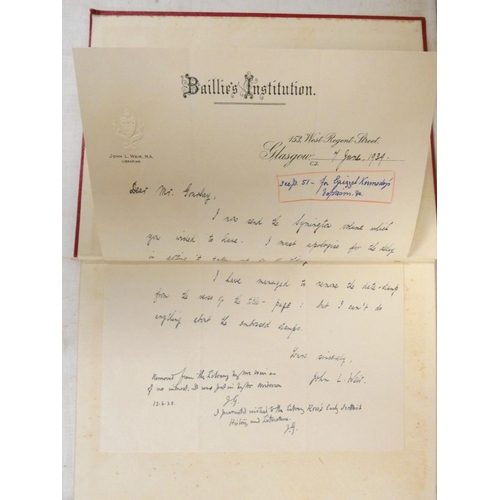 Baillie's Institution.
153 West Regent Street
JOHN L. WEIR, M.A.
LIBRARIAN
Glasgow, C2. 7 June 1939.
See p. 51 – for Kennedy's
Dear Mr. Gourlay,
I now send the Symington volume which
you wished to have. I must apologise for the delay
in
I have managed to remove the date-stamp
from the verso of the title-page; but I can't do
anything about the embossed stamps.
Yours sincerely,
John L. Weir.
Removed from the Library by Mr Weir as
of no interest. It was put in by Mr Anderson
J.G.
I presented instead to the Library Early Scottish
History and Literature.
J.G.